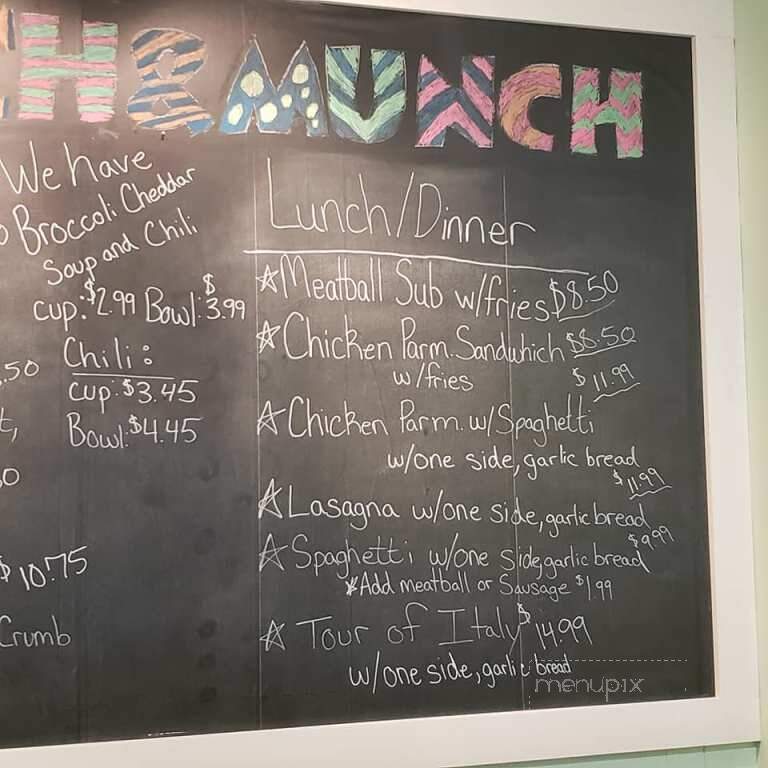 H & MUNCH
We have
Broccoli Cheddar
Soup and Chili
cup: $2.99 Bowl: $3.99
Chili:
cup: $3.45
Bowl: $4.45
.50
t,
0
$10.75
Crumb
Lunch/Dinner
☆ Meatball Sub w/fries $8.50
☆ Chicken Parm. Sandwhich $8.50
w/fries
$11.99
☆ Chicken Parm. w/Spaghetti
w/one side, garlic bread
$11.99
☆ Lasagna w/one side, garlic bread
$9.99
☆ Spaghetti w/one side, garlic bread
*Add meatball or Sausage $1.99
☆ Tour of Italy $14.99
w/one side, garlic bread
menupix